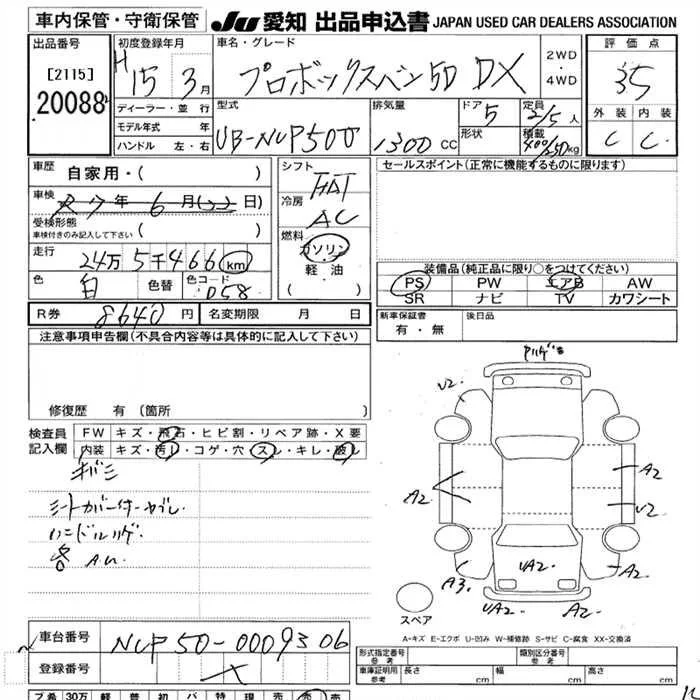 車内保管・守衛保管
JU 愛知 出品申込書 JAPAN USED CAR DEALERS ASSOCIATION
出品番号
[2115]
20088
初度登録年月
H15 3月
ディーラー・並行
モデル年式 年
ハンドル 左・右
車名・グレード
プロボックスバン5D DX
2WD
・
4WD
型式
UB-NCP50V
排気量
1300 CC
ドア
5
形状
定員
2/5人
積載
400/250kg
評価点
3.5
外装 内装
C C
車歴
自家用・( )
車検
年 6月 日)
受検形態
車検付きのみ記入して下さい ( )
走行
24万5千466km
色
白
色替
色コード
058
R券 8640円
名変期限 月 日
シフト
FAT
冷房
AC
燃料
ガソリン
軽油
( )
セールスポイント(正常に機能するものに限ります)
装備品(純正品に限り○をつけてください)
PS PW エアB AW
SR ナビ TV カワシート
新車保証書
有・無
後日品
注意事項申告欄(不具合内容等は具体的に記入して下さい)
修復歴 有(箇所
検査員
記入欄
FW キズ・飛石・ヒビ割・リペア跡・X要
内装 キズ・汚レ・コゲ・穴・スレ・キレ・破レ
キバミ
シートカバー付ヤブレ
ハンドルハゲ
A.U.
U2
A2
A2
A2
U2
A3
UA2
A2
UA2
A2
スペア
A-キズ E-エクボ U-凹み W-補修跡 S-サビ C-腐食 XX-交換済
車台番号
NCP50-0009306
登録番号
形式指定番号
参考
類別区分番号
参考
車庫証明用
参考
長さ cm
幅 cm
高さ cm